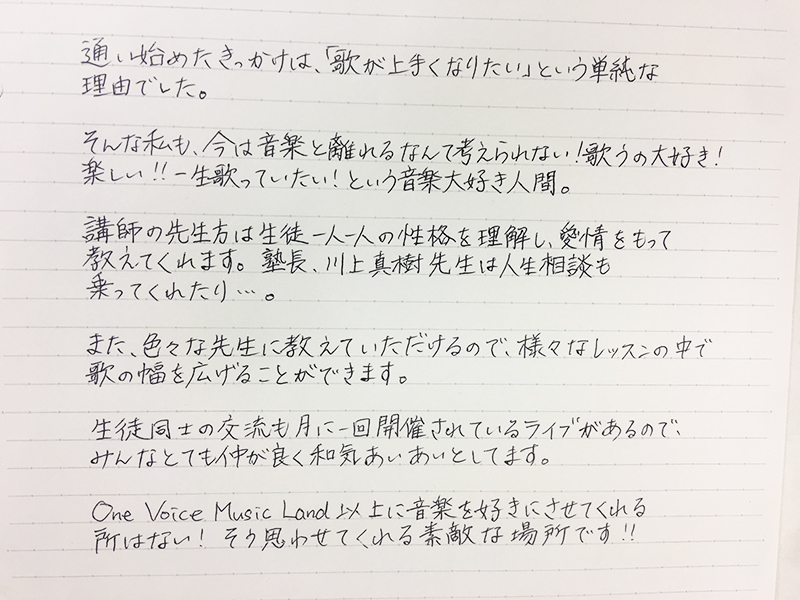 通い始めたきっかけは、「歌が上手くなりたい」という単純な
理由でした。
そんな私も、今は音楽と離れるなんて考えられない！歌うの大好き！
楽しい！！一生歌っていたい！という音楽大好き人間。
講師の先生方は生徒一人一人の性格を理解し、愛情をもって
教えてくれます。塾長、川上真樹先生は人生相談も
乗ってくれたり…。
また、色々な先生に教えていただけるので、様々なレッスンの中で
歌の幅を広げることができます。
生徒同士の交流も月に一回開催されているライブがあるので、
みんなとても仲が良く和気あいあいとしてます。
One Voice Music Land以上に音楽を好きにさせてくれる
所はない！そう思わせてくれる素敵な場所です！！